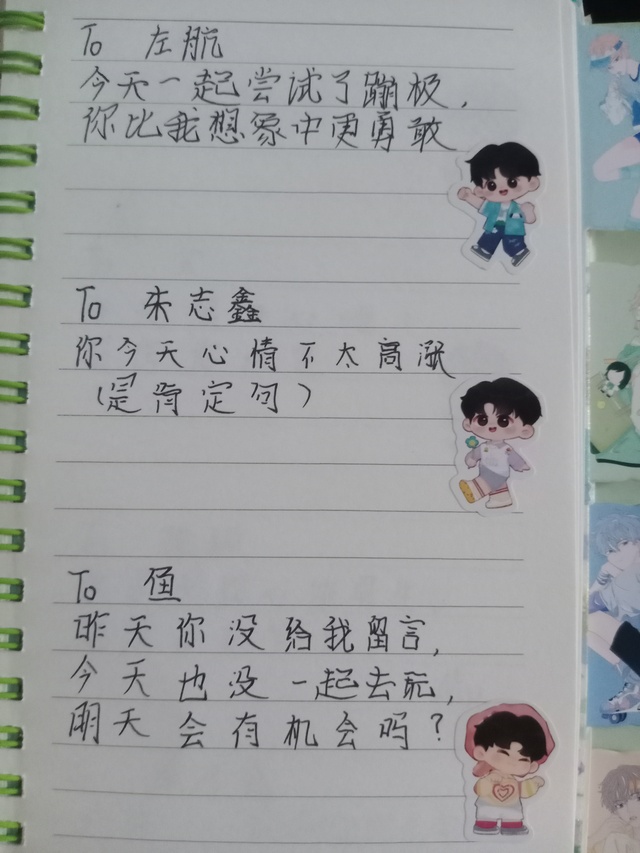 To 左航
今天一起尝试了蹦极，
你比我想象中更勇敢
To 朱志鑫
你今天心情不太高涨
（是肯定句）
To 鱼
昨天你没给我留言，
今天也没一起去玩，
明天会有机会吗？